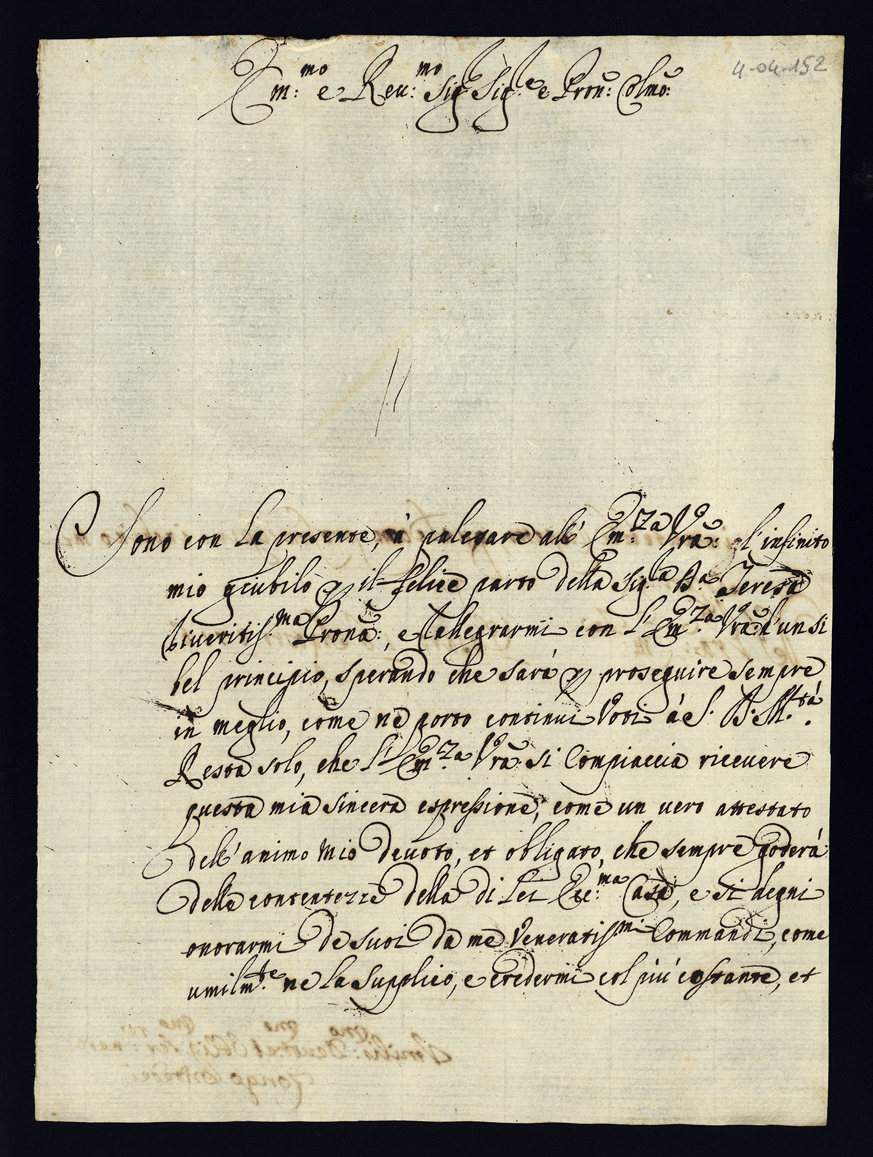 4-04-152
Em:mo e Reu:mo Sig.r Sig.re e Pron: Colmo:
Sono con La presente, à palesare all' Em:za Vrã: l'infinito
mio giubilo p il felice parto della Sig.la D.a Teresa
Riueritiss.ma Pronã:, e rallegrarmi con l'Em.za Vrã d'un si
bel principio, sperando che sarà p proseguire sempre
in meglio, come nè porto continui Voti à S. D. M.tà.
Resta solo, che l'Em.za Vrã: si Compiaccia riceuere
questa mia sincera espressione, come un vero attestato
dell'animo Mio deuoto, et obligato, che sempre goderà
delle contentezze della di Lei Ecc:ma Casa, e si degni
onorarmi de suoi da me Veneratiss.mi Commandi, come
umilm.te ne la Supplico, e credermi col più costante, et